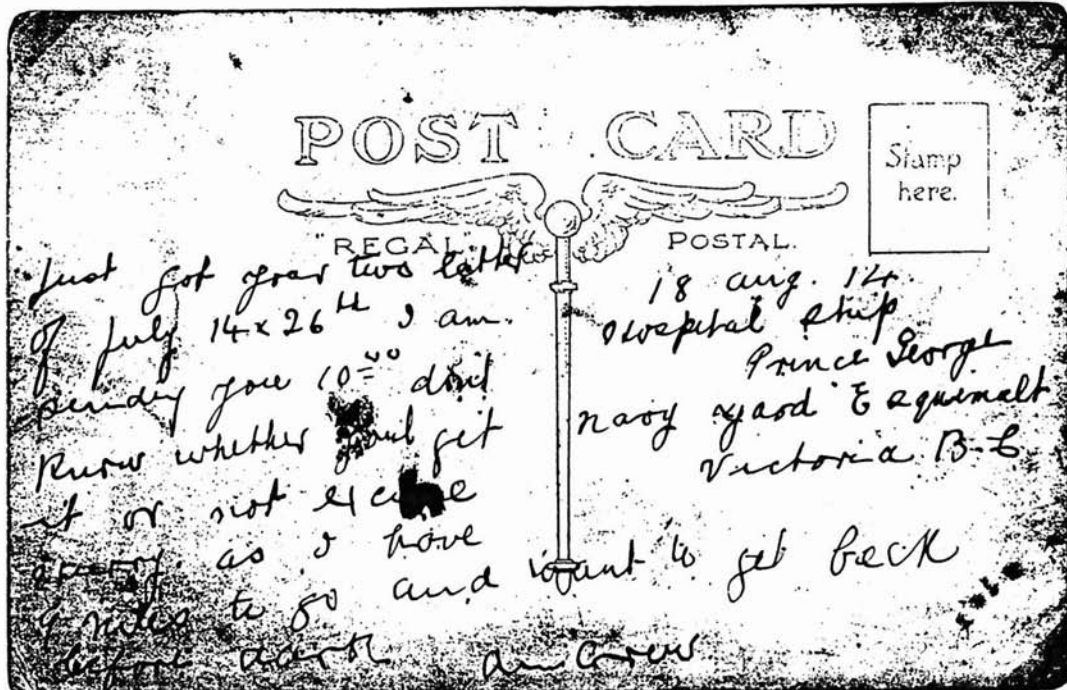 POST CARD
Stamp
here.
"REGAL" POSTAL.
Just got your two letters
of July 14 x 26th I am
sending you 10.00 don't
know whether youl get
it or not excuse
as I have
4 miles to go and want to get back
before dark
18 aug. 14.
Hospital Ship
Prince George
navy yard Esquimalt
Victoria B-C